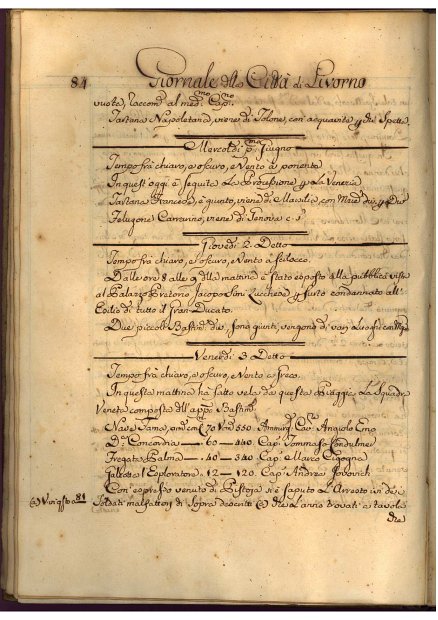 84 Giornale della Città di Livorno
vuota, raccom. al med.mo Cap.no
Tartana Napoletana, viene di Tolone, con acquavite per di Spette.
Mercoldi p.ma Giugno
Tempo frà chiaro, e oscuro, e Vento a ponente
In quest'oggi è seguita La Processione per La Venezia
Tartana Francese, è giunta, viene di Marsilia, con Merci div.e per Div.
Felugone Carrarino, viene di Genova c. s.
Giovedi 2 Detto
Tempo frà chiaro, e oscuro, e Vento a scilocco
Dalle ore 8 alle 9 della mattina è stato esposto alla pubblica vista
al Palazzo Pretorio Jacopo Lucchese per furto condannato all'
Esilio di tutto il Gran-Ducato.
Due piccoli Bastim.ti div.i, sono giunti, vengono di vari Luoghi con
Venerdi 3 Detto
Tempo frà chiaro, e oscuro, e Vento a freco.
In questa mattina hà fatto vela da questa Spiaggia La Squadra
Veneta composta dell' app.o Bastim.ti
Nave Fama, 70 550 Ammirag. Cav. Angiolo Emo
D.a Concordia — 60 — 440 Cap. Tommaso Condulmer
Fregata Palma — 40 — 340 Cap. Marco Cigogna
Galeotta l'Esploratore, 12 — 120 Cap. Andrea Jovovich
Con espresso venuto di Pistoja si è saputo L'Arresto in dei
(a) 81 Soldati malfattori di sopra descritti (a) che L'anno trovati a tavola
che